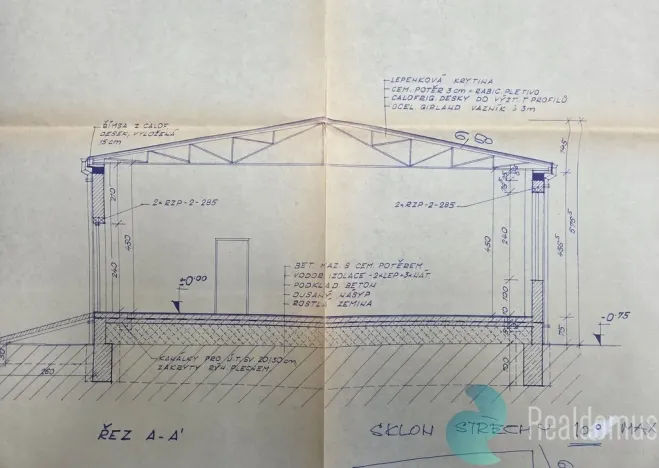 LEPENKOVÁ KRYTINA
CEM. POTĚR 3 cm + RABIC. PLETIVO
CALOFRIG. DESKY DO VÝZT. T PROFILŮ
OCEL. GIRLAND VAZNÍK á 3m
ŘÍMSA Z CALOF.
DESEK, VYLOŽENÁ
15 cm
6,80
145
210
2x RZP-2-285
2x RZP-2-285
450
450
240
240
675⁵
BET. MAZ. S CEM. POTĚREM
VODOR. IZOLACE - 2x LEP + 3x NÁT
PODKLAD. BETON
DUSANÝ NÁSYP
ROSTLÁ ZEMINA
±0.00
100
75
-0.75
KANÁLKY PRO ÚT, SV. 20/30 cm,
ZAKRYTY RÝH. PLECHEM
260
100
ŘEZ A-A'
SKLON STŘECHY 10° MAX
Realdomus